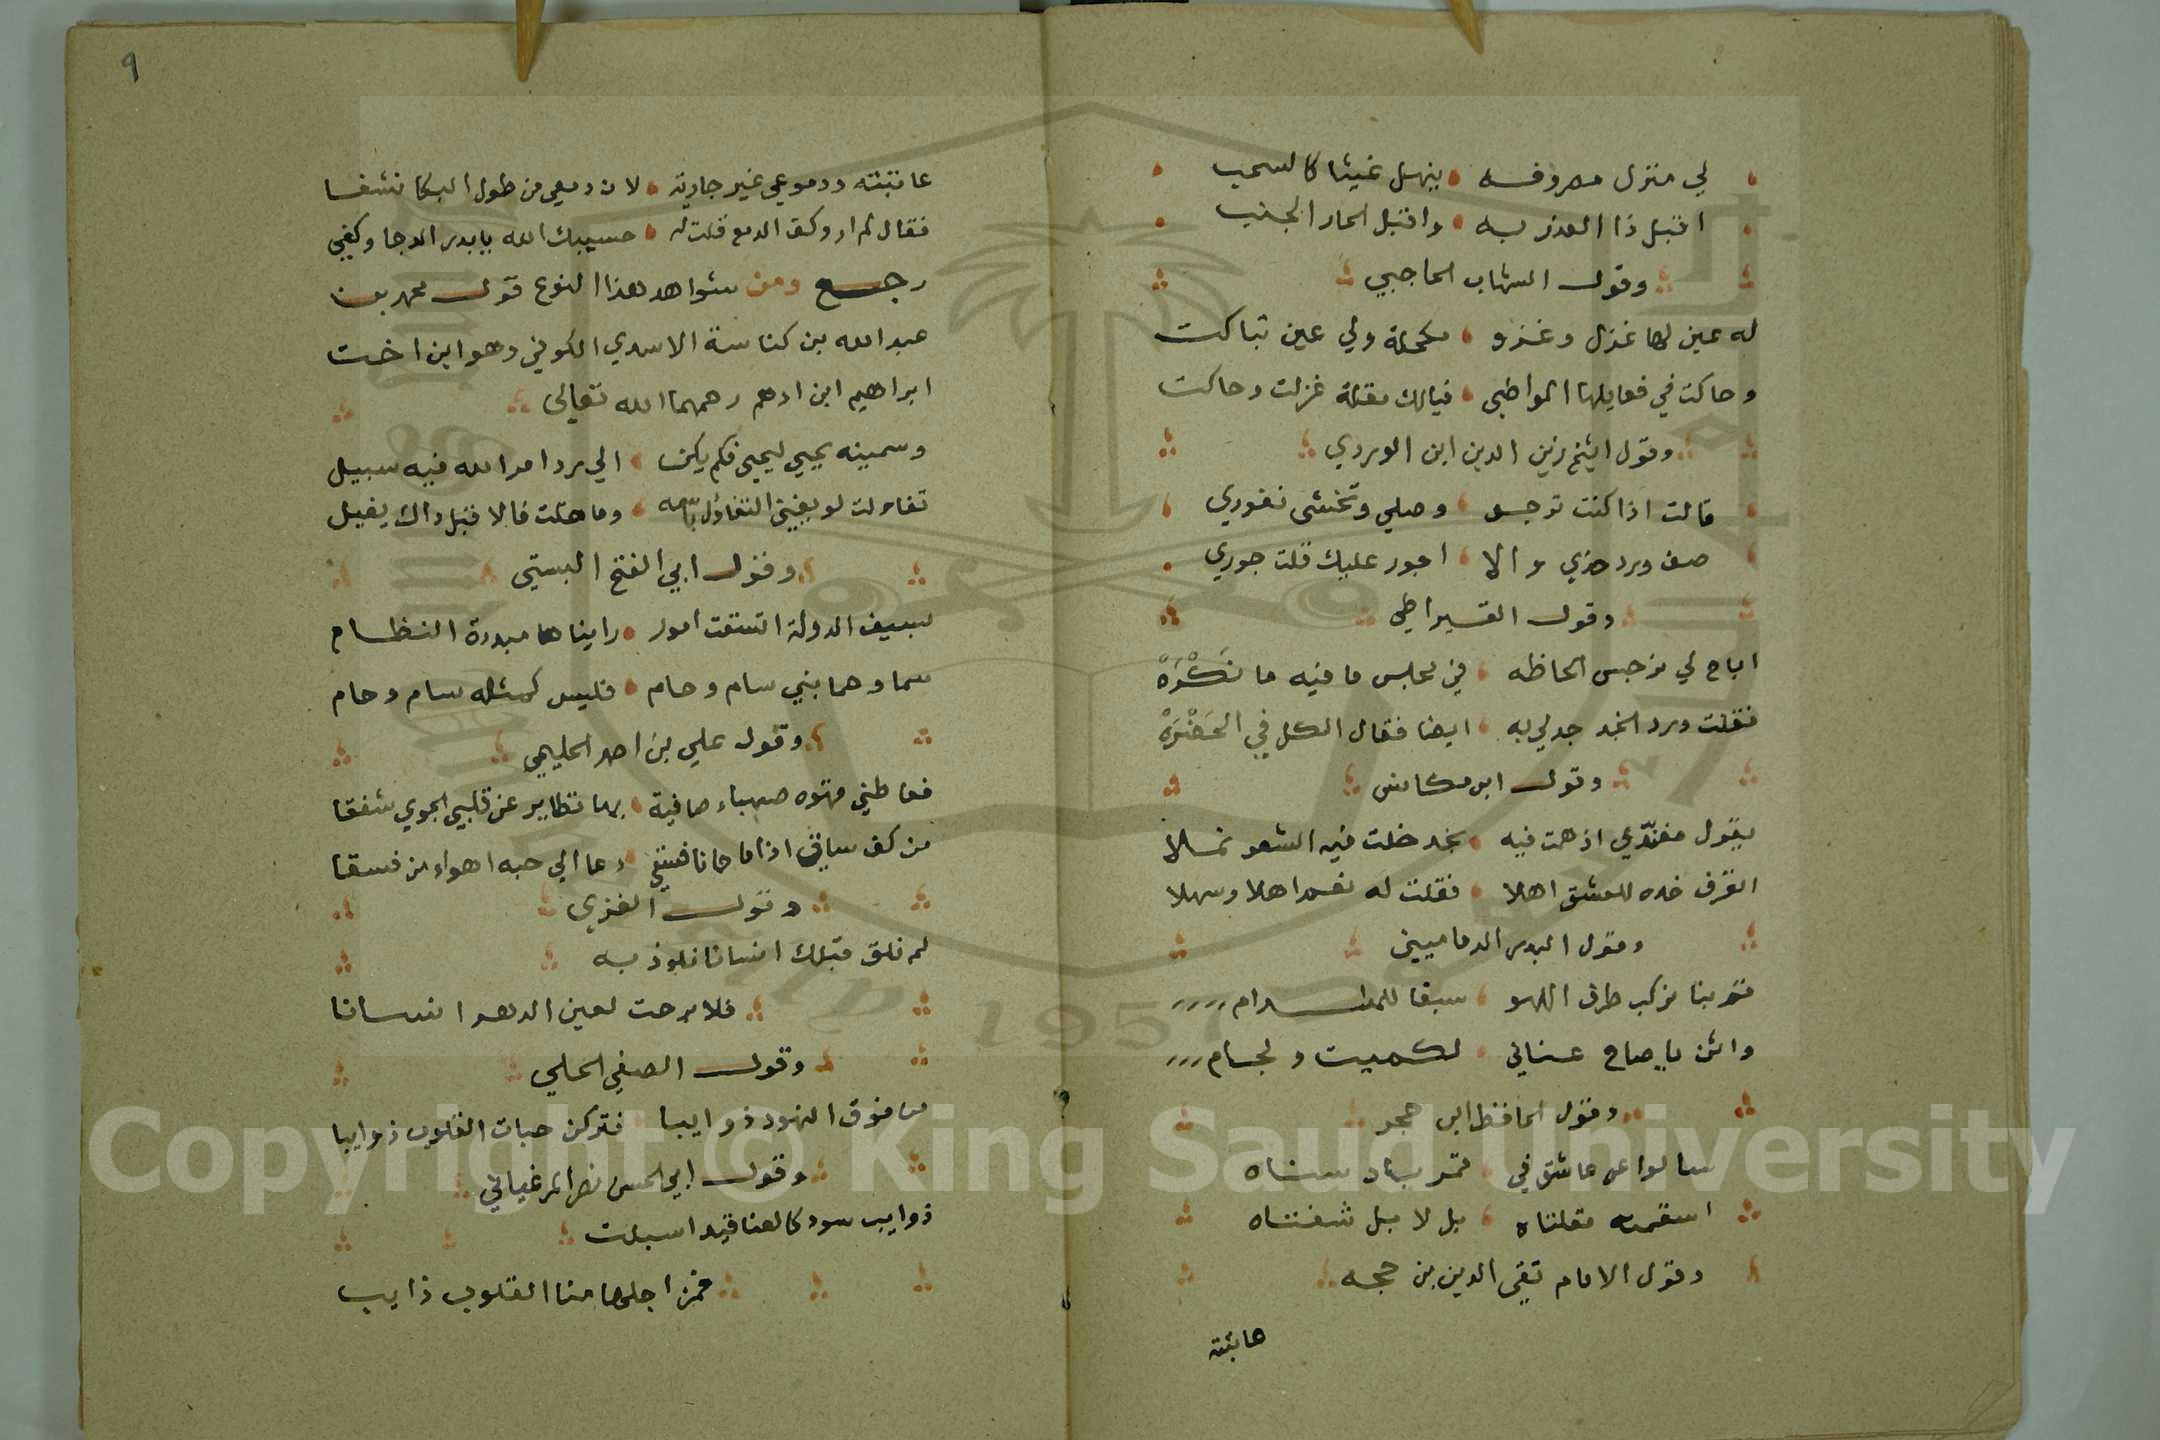 لي منزل معروفه ينهل غيثا كالسحب
اقبل ذا العذر به واقبل الجار الجنب
وقول الشهاب الحاجبي
له عين لها غزل وغزو مكحلة ولي عين تباكت
وحاكت في فعايلها المواضي فيالك مقلة غزلت وحاكت
وقول الشيخ زين الدين ابن الوردي
قالت اذا كنت ترجو وصلي وتخشى نفوري
صف ورد خدي والا اجور عليك قلت جوري
وقول القيراطي
اباح لي نرجس الحاظه في مجلس ما فيه ما نَكْرَهْ
فقلت ورد الخد جد لي به ايضا فقال الكل في الحَضْرَهْ
وقول ابن مكانس
يقول مفندي اذ همت فيه بخد خلت فيه الشعر نملا
اتعرف خده للعشق اهلا فقلت له نعم اهلا وسهلا
وقول البدر الدماميني
قم بنا نركب طرف اللهو سبقا للمدام
واثن يا صاح عناني لكميت ولجام
وقول الحافظ ابن حجر
سالوا عن عاشق في قمر باد سناه
اسقمته مقلتاه بل لا بل شفتاه
وقول الامام تقي الدين بن حجه
عاتبته
٩
عاتبته ودموعي غير جارية لان دمعي من طول البكا نشفا
فقال لم ار وكف الدمع قلت له حسيبك الله يا بدر الدجا وكفي
رجع ومن شواهد هذا النوع قول محمد بن
عبد الله بن كناسة الاسدي الكوفي وهو ابن اخت
ابراهيم ابن ادهم رحمهما الله تعالى
وسميته يحيي ليحيي فلم يكن الي رد امر الله فيه سبيل
تفاءلت لو يغني التفاؤل باسمه وما خلت فالا قبل ذاك يفيل
وقول ابي الفتح البستي
بسيف الدولة اتسقت امور رايناها مبددة النظام
سما وحما بني سام وحام فليس كمثله سام وحام
وقول علي بن احمد الحليمي
فعاطني قهوه صهباء صافية بها تطاير عن قلبي الجوي شفقا
من كف ساق اذا ما حانا فسقي دعا الي حبه اهواء من فسقا
وقول الغزي
لم نلق قبلك انسانا نلوذ به
فلا برحت لعين الدهر انسانا
وقول الصفي الحلي
من فوق النهود ذوايبا فتركن حبات القلوب ذوايبا
وقول ابي الحسن نصر المرغياني
ذوايب سود كالعناقيد اسبلت
فمن اجلها منا القلوب ذايب
Copyright © King Saud University
1957